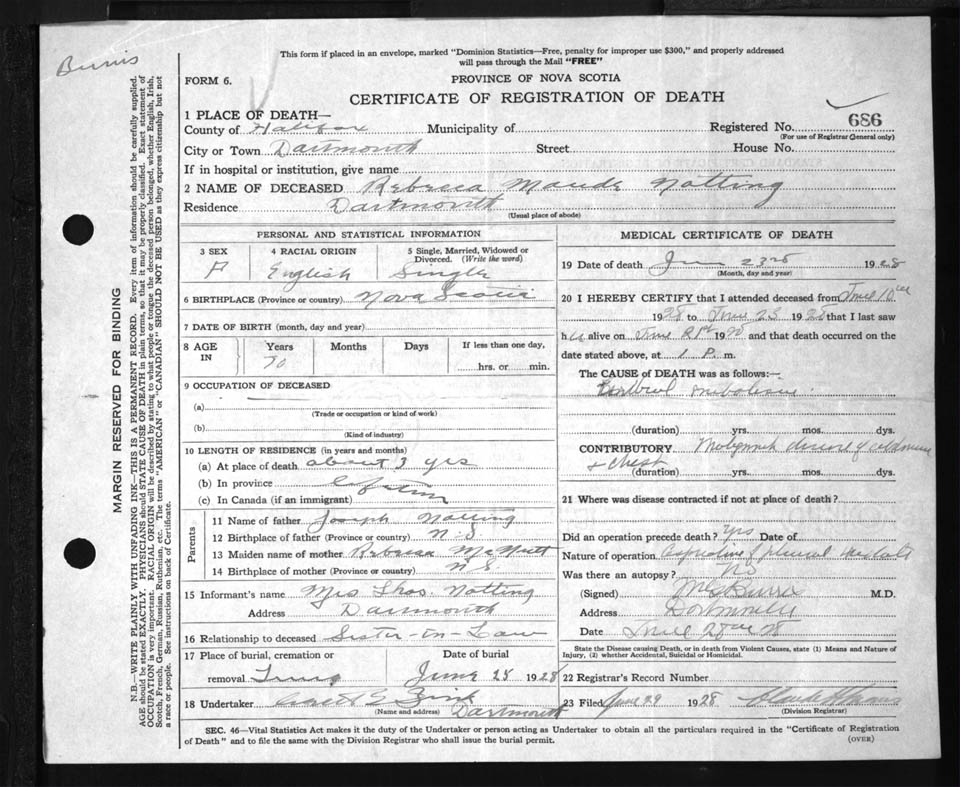 Burns
This form if placed in an envelope, marked "Dominion Statistics—Free, penalty for improper use $300," and properly addressed
will pass through the Mail "FREE"
FORM 6.
PROVINCE OF NOVA SCOTIA
CERTIFICATE OF REGISTRATION OF DEATH
1 PLACE OF DEATH—
County of Halifax Municipality of Registered No. 686
(For use of Registrar General only)
City or Town Dartmouth Street House No.
If in hospital or institution, give name
2 NAME OF DECEASED Rebecca Maude Notting
Residence Dartmouth
(Usual place of abode)
PERSONAL AND STATISTICAL INFORMATION
3 SEX 4 RACIAL ORIGIN 5 Single, Married, Widowed or
Divorced. (Write the word)
F English Single
6 BIRTHPLACE (Province or country) Nova Scotia
7 DATE OF BIRTH (month, day and year)
8 AGE IN Years Months Days If less than one day,
70 hrs. or min.
9 OCCUPATION OF DECEASED
(a)
(Trade or occupation or kind of work)
(b)
(Kind of industry)
10 LENGTH OF RESIDENCE (in years and months)
(a) At place of death about 3 yrs
(b) In province Lifetime
(c) In Canada (if an immigrant)
Parents
11 Name of father Joseph Notting
12 Birthplace of father (Province or country) N.S.
13 Maiden name of mother Rebecca McNutt
14 Birthplace of mother (Province or country) N S
15 Informant's name Mrs Thos. Notting
Address Dartmouth
16 Relationship to deceased Sister-in-Law
17 Place of burial, cremation or Date of burial
removal Truro June 25 1928
18 Undertaker Zink
(Name and address) Dartmouth
MEDICAL CERTIFICATE OF DEATH
19 Date of death June 23rd 1928
(Month, day and year)
20 I HEREBY CERTIFY that I attended deceased from June 10th
1928 to June 23 1928 that I last saw
h alive on June 21st 19 and that death occurred on
the date stated above, at 1 P. m.
The CAUSE OF DEATH was as follows:—
Cerebral embolism.
(duration) yrs. mos. dys.
CONTRIBUTORY Malignant disease of abdomen
+ chest
(duration) yrs. mos. dys.
21 Where was disease contracted if not at place of death?
Did an operation precede death? Yes Date of
Nature of operation Aspiration of pleural
Was there an autopsy? No
(Signed) Burns M.D.
Address Dartmouth
Date June 28th 28
State the Disease causing Death, or in death from Violent Causes, state (1) Means and Nature of
Injury, (2) whether Accidental, Suicidal or Homicidal.
22 Registrar's Record Number
23 Filed June 29 1928
(Division Registrar)
SEC. 46—Vital Statistics Act makes it the duty of the Undertaker or person acting as Undertaker to obtain all the particulars required in the "Certificate of Registration
of Death" and to file the same with the Division Registrar who shall issue the burial permit.
(OVER)
MARGIN RESERVED FOR BINDING
N.B.—WRITE PLAINLY WITH UNFADING INK—THIS IS A PERMANENT RECORD. Every item of information should be carefully supplied.
AGE should be stated EXACTLY. PHYSICIANS should STATE CAUSE OF DEATH in plain terms, so that it may be properly classified. Exact statement of
OCCUPATION is very important. RACIAL ORIGIN will be described by stating to what people or tongue the deceased person belonged, whether English, Irish,
Scotch, French, German, Russian, Ruthenian, etc. The terms "AMERICAN" or "CANADIAN" SHOULD NOT BE USED as they express citizenship but not
a race or people. See instructions on back of Certificate.